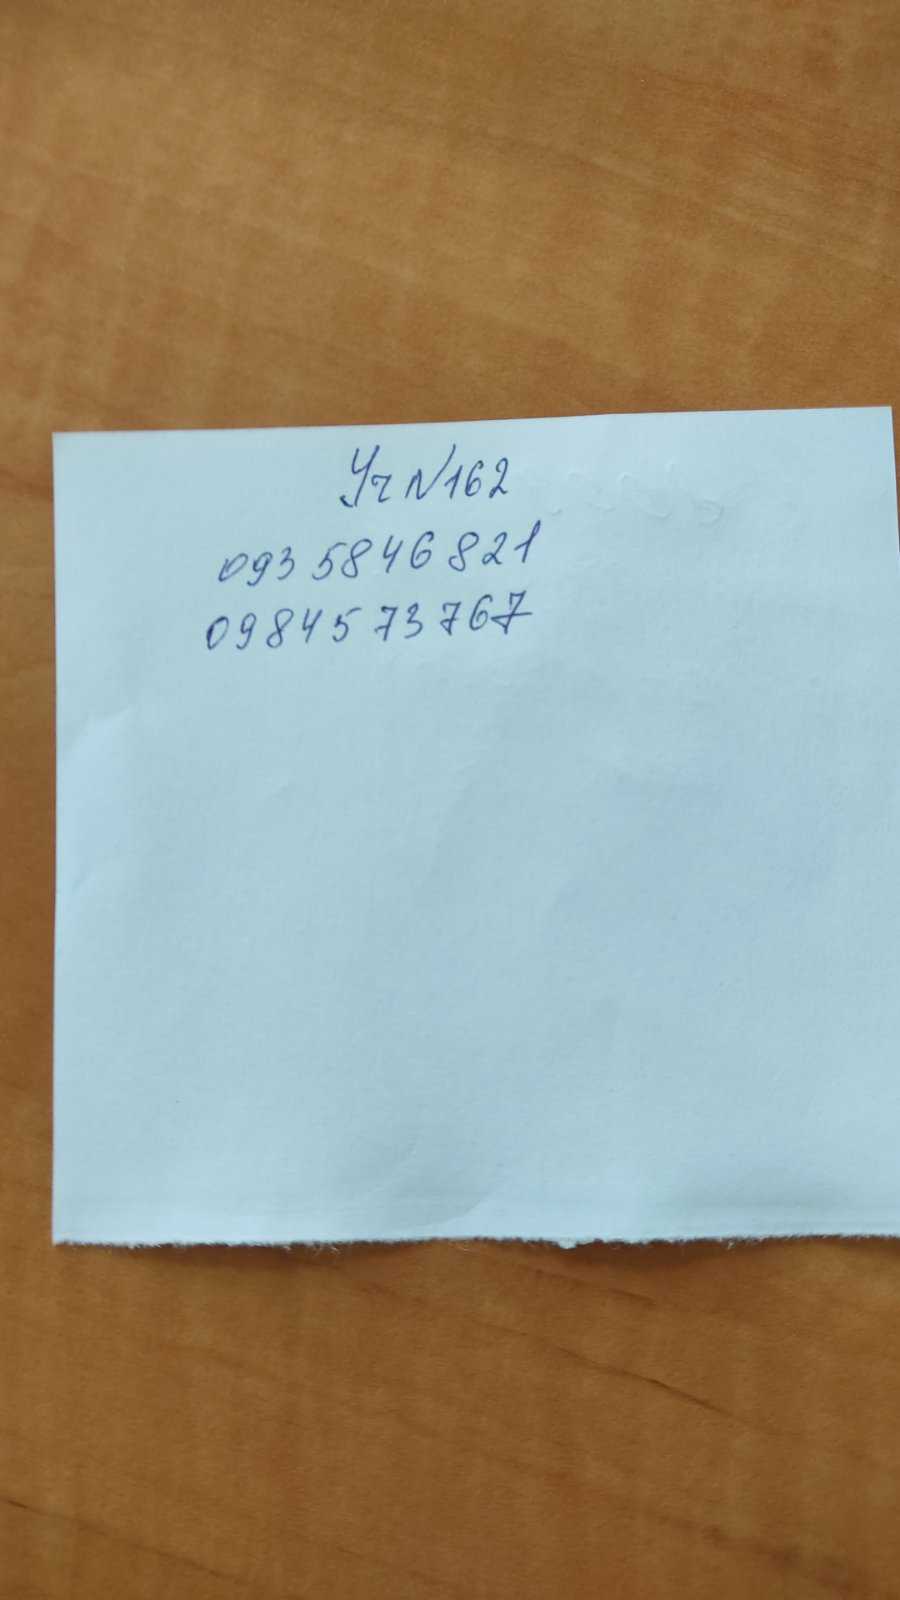 Уч N162
093 5846 821
09845 73 767